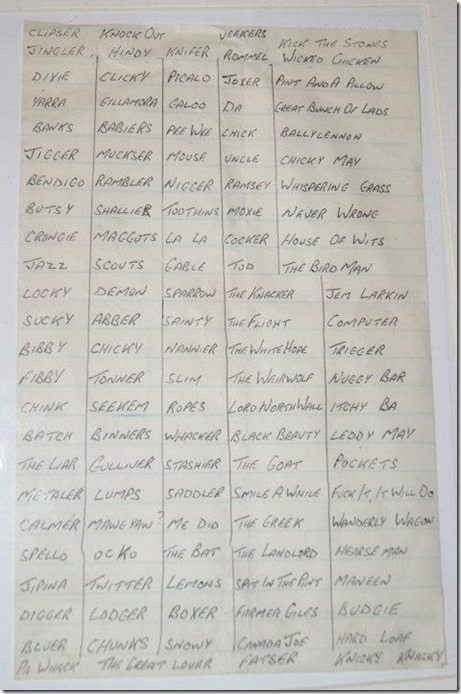 CLIPSER KNOCK OUT JEEKERS
JINGLER HINDY KNIFER ROMMEL KICK THE STONES
WICKED CHICKEN
DIXIE CLICKY PICALO JOXER PINT AND A PILLOW
YARRA GILLAMORA GALOO DA GREAT BUNCH OF LADS
BANKS BABIERS PEE WEE CHICK BALLYLENNON
JIGGER MUCKSER MOUSE UNCLE CHICKY MAY
BENDIGO RAMBLER NIGGER RAMSEY WHISPERING GRASS
BUTSY SHALLIER TOOTHINS MOXIE NEVER WRONG
CRONGIE MAGGOTS LA LA COCKER HOUSE OF WITS
JAZZ SCOUTS GABLE TOD THE BIRD MAN
LOCKY DEMON SPARROW THE KNACKER JEM LARKIN
SUCKY ABBER SAINTY THE FLIGHT COMPUTER
BIBBY CHICKY NANNIER THE WHITE HOPE TRIGGER
FIBBY TONNER SLIM THE WEIRWOLF NUGGY BAR
CHINK SEEKEM ROPES LORD NORTH WALL ITCHY BA
BATCH BINNERS WHACKER BLACK BEAUTY LEDDY MAY
THE LIAR GULLIVER STASHIER THE GOAT POCKETS
METALER LUMPS SADDLER SMILE A WHILE FUCK IT, IT WILL DO
CALMÉR MAWEYAW? ME DID THE GREEK WANDERLY WAGON
SPELLO OCKO THE BAT THE LANDLORD HEARSE MAN
JIPINA TWITTER LEMONS SAT IN THE PINT MANEEN
DIGGER LODGER BOXER FARMER GILES BUDGIE
BLUER CHUNKS SNOWY CANADA JOE HARD LOAF
PA WHACK THE GREAT LOVER FATSER KNICKY KNACKY